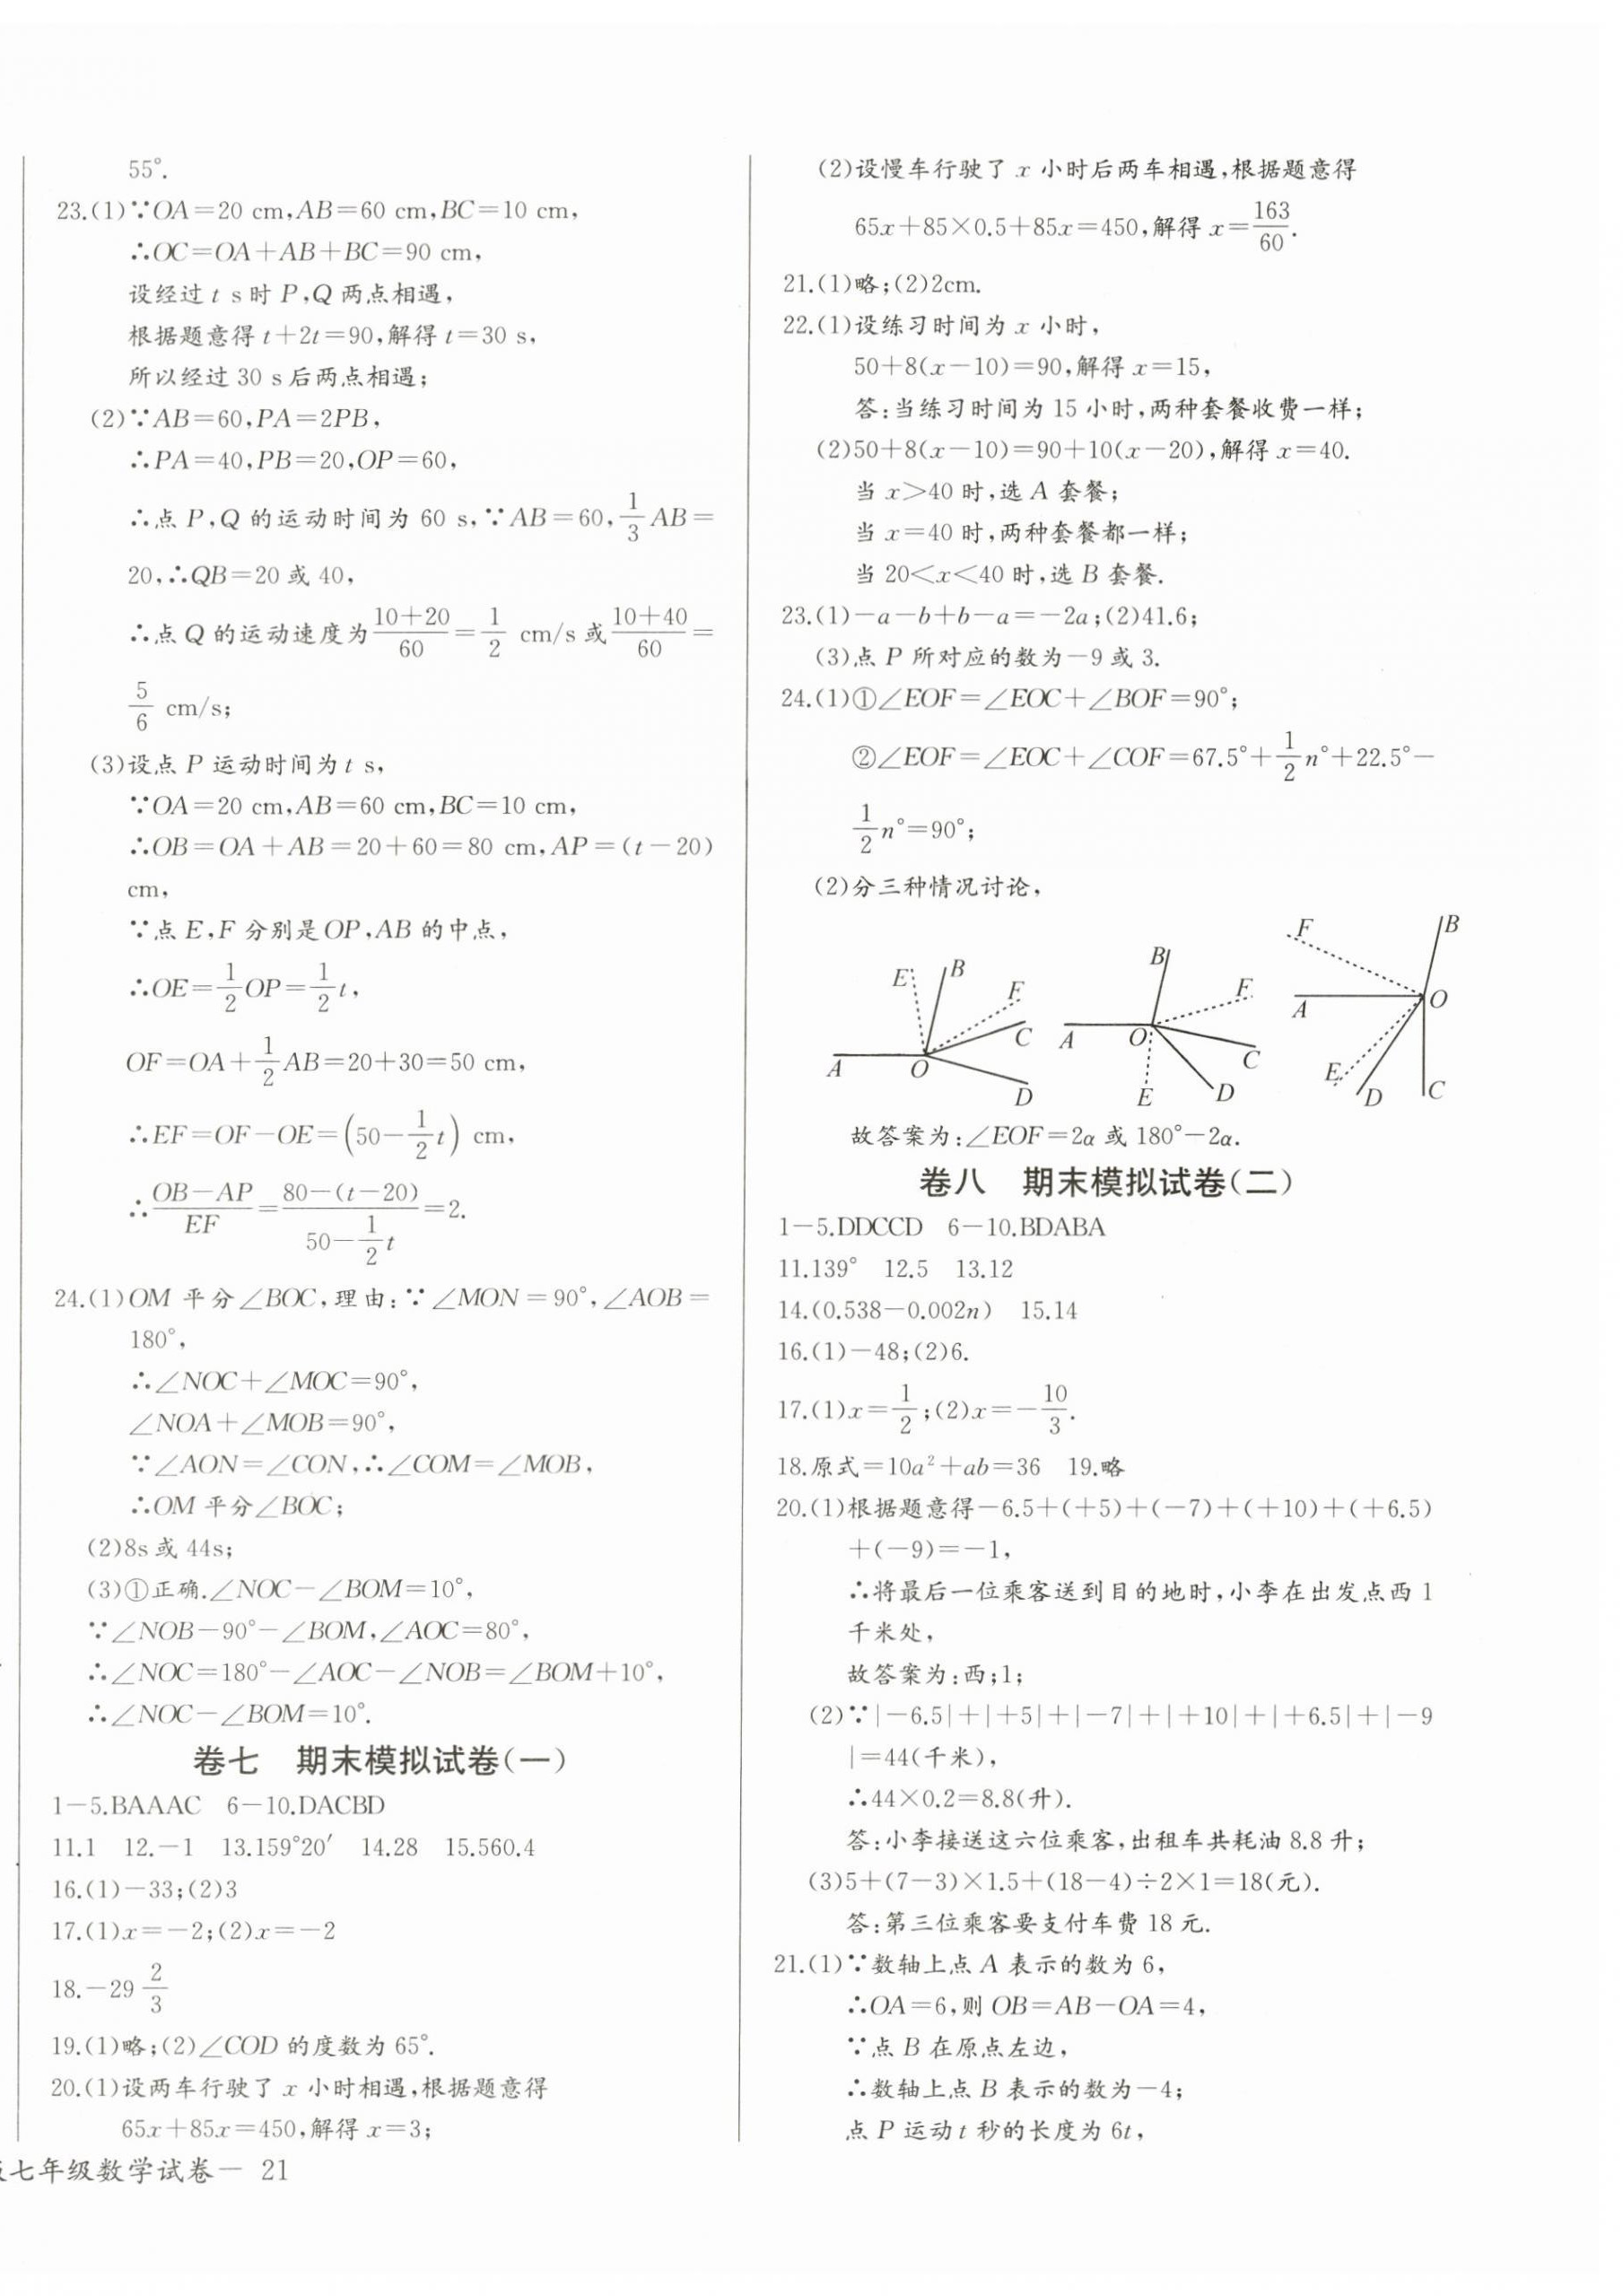 55°.
23.(1)∵OA=20 cm,AB=60 cm,BC=10 cm,
∴OC=OA+AB+BC=90 cm,
设经过 t s 时 P,Q 两点相遇,
根据题意得 t+2t=90,解得 t=30 s,
所以经过 30 s 后两点相遇;
(2)∵AB=60,PA=2PB,
∴PA=40,PB=20,OP=60,
∴点 P,Q 的运动时间为 60 s,∵AB=60,1/3 AB=
20,∴QB=20 或 40,
∴点 Q 的运动速度为 (10+20)/60=1/2 cm/s 或 (10+40)/60=
5/6 cm/s;
(3)设点 P 运动时间为 t s,
∵OA=20 cm,AB=60 cm,BC=10 cm,
∴OB=OA+AB=20+60=80 cm,AP=(t-20)
cm,
∵点 E,F 分别是 OP,AB 的中点,
∴OE=1/2 OP=1/2 t,
OF=OA+1/2 AB=20+30=50 cm,
∴EF=OF-OE=(50-1/2 t) cm,
∴(OB-AP)/EF=(80-(t-20))/(50-1/2 t)=2.
24.(1)OM 平分∠BOC,理由:∵∠MON=90°,∠AOB=
180°,
∴∠NOC+∠MOC=90°,
∠NOA+∠MOB=90°,
∵∠AON=∠CON,∴∠COM=∠MOB,
∴OM 平分∠BOC;
(2)8s 或 44s;
(3)①正确.∠NOC-∠BOM=10°,
∵∠NOB-90°-∠BOM,∠AOC=80°,
∴∠NOC=180°-∠AOC-∠NOB=∠BOM+10°,
∴∠NOC-∠BOM=10°.
卷七 期末模拟试卷(一)
1-5.BAAAC 6-10.DACBD
11.1 12.-1 13.159°20′ 14.28 15.560.4
16.(1)-33;(2)3
17.(1)x=-2;(2)x=-2
18.-29 2/3
19.(1)略;(2)∠COD 的度数为 65°.
20.(1)设两车行驶了 x 小时相遇,根据题意得
65x+85x=450,解得 x=3;
七年级数学试卷— 21
(2)设慢车行驶了 x 小时后两车相遇,根据题意得
65x+85×0.5+85x=450,解得 x=163/60.
21.(1)略;(2)2cm.
22.(1)设练习时间为 x 小时,
50+8(x-10)=90,解得 x=15,
答:当练习时间为 15 小时,两种套餐收费一样;
(2)50+8(x-10)=90+10(x-20),解得 x=40.
当 x>40 时,选 A 套餐;
当 x=40 时,两种套餐都一样;
当 20<x<40 时,选 B 套餐.
23.(1)-a-b+b-a=-2a;(2)41.6;
(3)点 P 所对应的数为-9 或 3.
24.(1)①∠EOF=∠EOC+∠BOF=90°;
②∠EOF=∠EOC+∠COF=67.5°+1/2 n°+22.5°-
1/2 n°=90°;
(2)分三种情况讨论,
E B F C A O D
B F A O C E D
F B A O E D C
故答案为:∠EOF=2α 或 180°-2α.
卷八 期末模拟试卷(二)
1-5.DDCCD 6-10.BDABA
11.139° 12.5 13.12
14.(0.538-0.002n) 15.14
16.(1)-48;(2)6.
17.(1)x=1/2;(2)x=-10/3.
18.原式=10a²+ab=36 19.略
20.(1)根据题意得-6.5+(+5)+(-7)+(+10)+(+6.5)
+(-9)=-1,
∴将最后一位乘客送到目的地时,小李在出发点西 1
千米处,
故答案为:西;1;
(2)∵|-6.5|+|+5|+|-7|+|+10|+|+6.5|+|-9
|=44(千米),
∴44×0.2=8.8(升).
答:小李接送这六位乘客,出租车共耗油 8.8 升;
(3)5+(7-3)×1.5+(18-4)÷2×1=18(元).
答:第三位乘客要支付车费 18 元.
21.(1)∵数轴上点 A 表示的数为 6,
∴OA=6,则 OB=AB-OA=4,
∵点 B 在原点左边,
∴数轴上点 B 表示的数为-4;
点 P 运动 t 秒的长度为 6t,